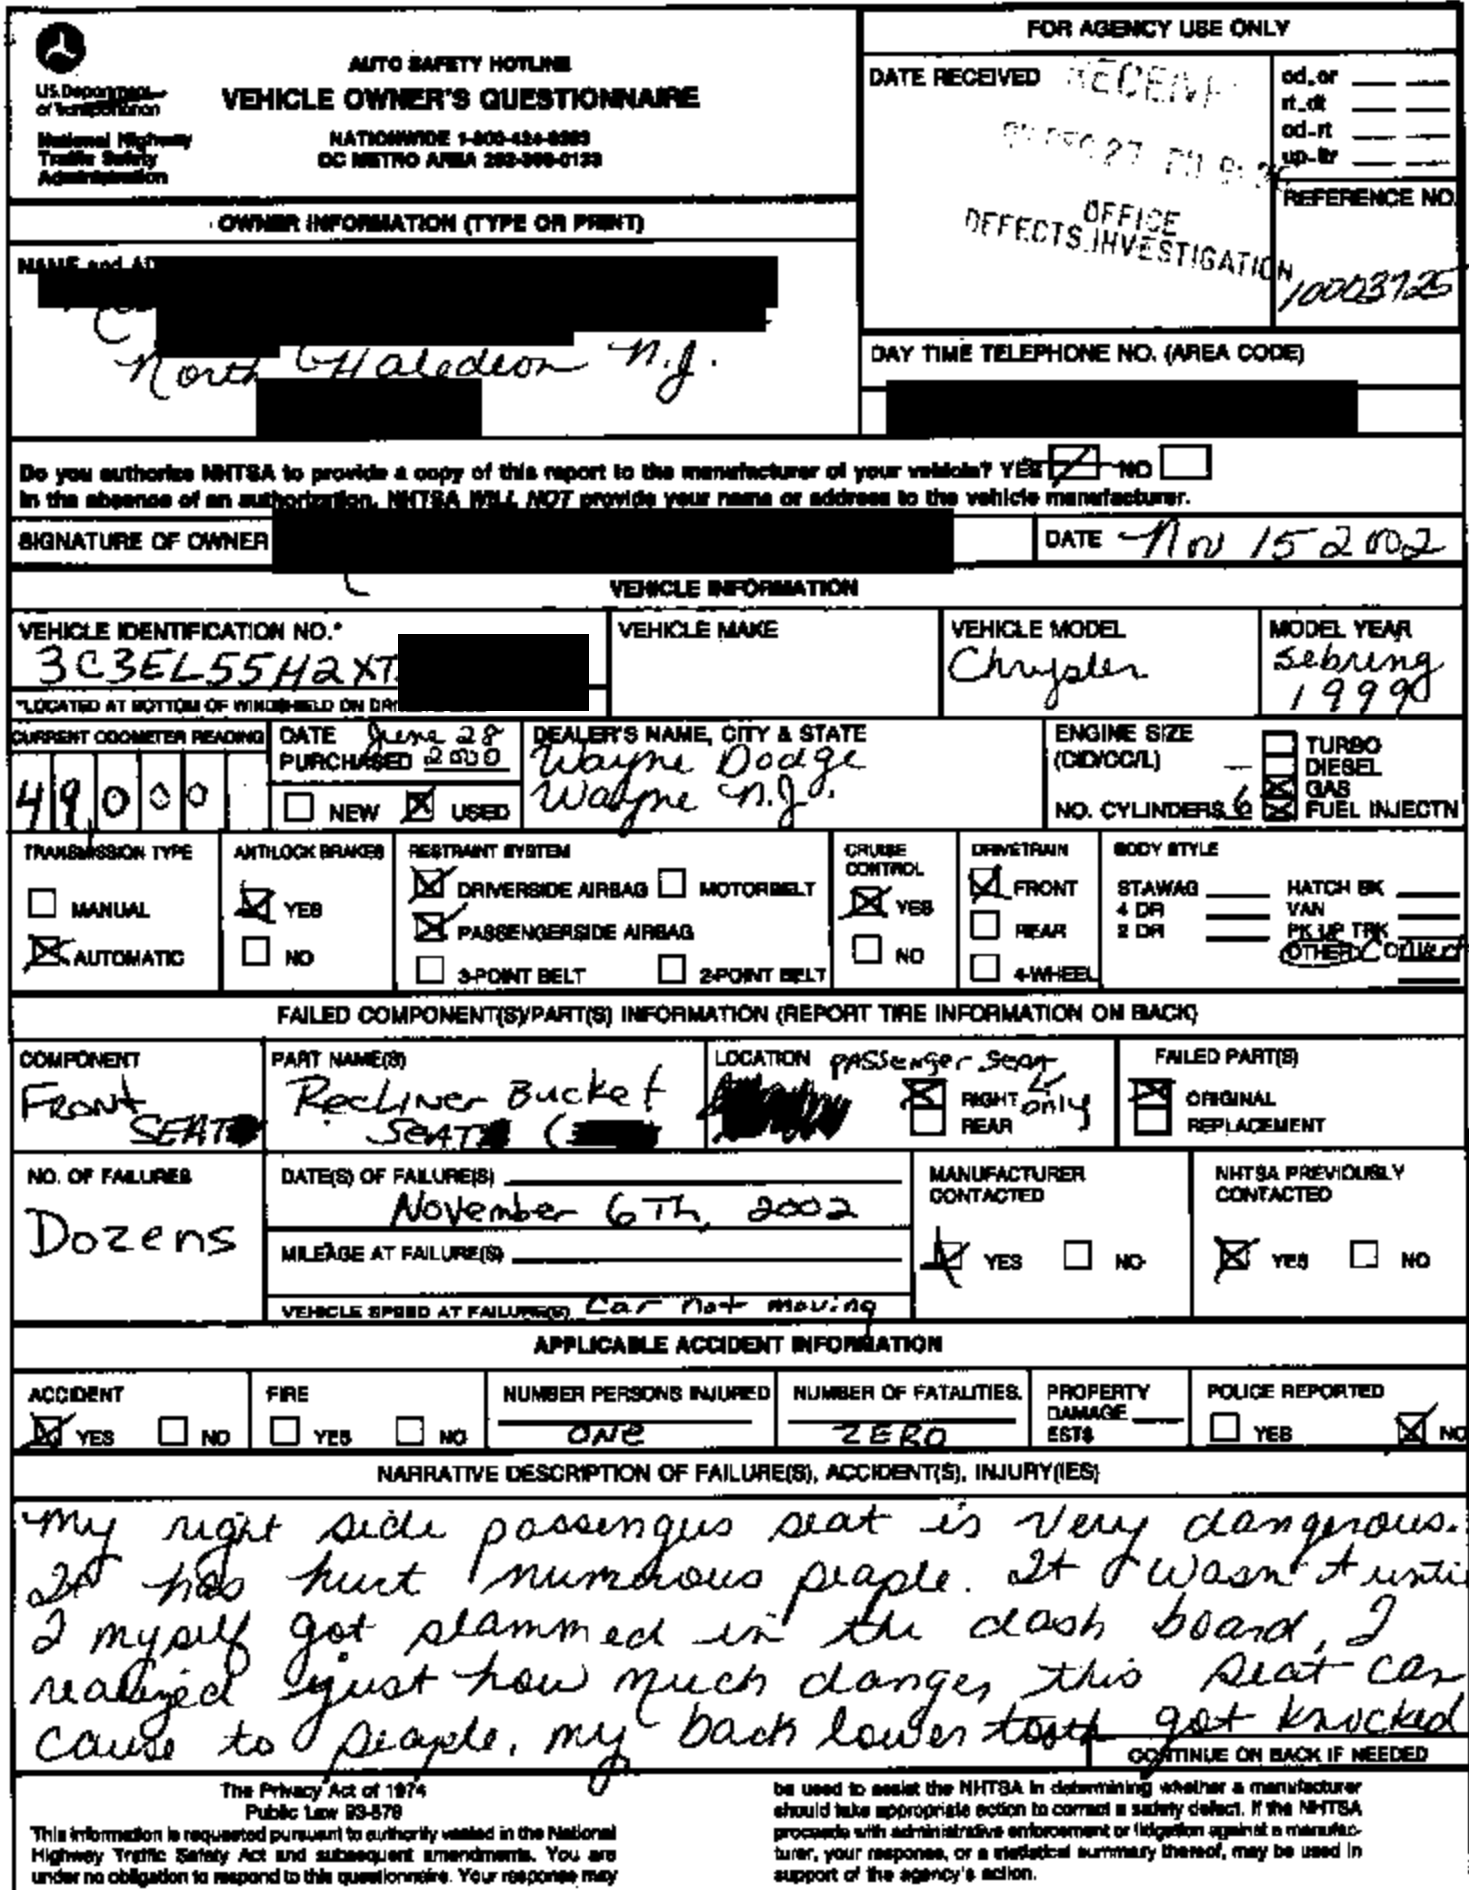 FOR AGENCY USE ONLY
U.S. Department
of Transportation
National Highway
Traffic Safety
Administration
AUTO SAFETY HOTLINE
VEHICLE OWNER'S QUESTIONNAIRE
NATIONWIDE 1-800-424-9393
DC METRO AREA 202-366-0123
DATE RECEIVED
RECEIV
DEC 27
OFFICE
DEFECTS INVESTIGATION
od_or
rt_dt
od-rt
up-ltr
REFERENCE NO.
10003725
OWNER INFORMATION (TYPE OR PRINT)
NAME and AD
North Haledeon N.J.
DAY TIME TELEPHONE NO. (AREA CODE)
Do you authorize NHTSA to provide a copy of this report to the manufacturer of your vehicle? YES NO
In the absence of an authorization, NHTSA WILL NOT provide your name or address to the vehicle manufacturer.
SIGNATURE OF OWNER
DATE Nov 15 2002
VEHICLE INFORMATION
VEHICLE IDENTIFICATION NO.*
3C3EL55H2XT
*LOCATED AT BOTTOM OF WINDSHIELD ON DRI
VEHICLE MAKE
VEHICLE MODEL
Chrysler
MODEL YEAR
Sebring
1999
CURRENT ODOMETER READING
49000
DATE PURCHASED June 28 2000
NEW X USED
DEALER'S NAME, CITY & STATE
Wayne Dodge
Wayne N.J.
ENGINE SIZE
(CID/CC/L)
NO. CYLINDERS 6
TURBO
DIESEL
X GAS
X FUEL INJECTN
TRANSMISSION TYPE
MANUAL
X AUTOMATIC
ANTILOCK BRAKES
X YES
NO
RESTRAINT SYSTEM
X DRIVERSIDE AIRBAG MOTORBELT
X PASSENGERSIDE AIRBAG
3-POINT BELT 2-POINT BELT
CRUISE
CONTROL
X YES
NO
DRIVETRAIN
X FRONT
REAR
4-WHEEL
BODY STYLE
STAWAG HATCH BK
4 DR VAN
2 DR PK UP TRK
OTHER Convert
FAILED COMPONENT(S)/PART(S) INFORMATION (REPORT TIRE INFORMATION ON BACK)
COMPONENT
Front
SEAT
PART NAME(S)
Recliner Bucket
SEAT (
LOCATION passenger seat
X RIGHT only
REAR
FAILED PART(S)
X ORIGINAL
REPLACEMENT
NO. OF FAILURES
Dozens
DATE(S) OF FAILURE(S)
November 6Th, 2002
MILEAGE AT FAILURE(S)
VEHICLE SPEED AT FAILURE(S) Car not moving
MANUFACTURER
CONTACTED
X YES NO
NHTSA PREVIOUSLY
CONTACTED
X YES NO
APPLICABLE ACCIDENT INFORMATION
ACCIDENT
X YES NO
FIRE
YES NO
NUMBER PERSONS INJURED
ONE
NUMBER OF FATALITIES
ZERO
PROPERTY
DAMAGE
EST$
POLICE REPORTED
YES X NO
NARRATIVE DESCRIPTION OF FAILURE(S), ACCIDENT(S), INJURY(IES)
My right side passengers seat is very dangerous.
It has hurt numerous people. It wasn't unti
I myself got slammed in the dash board, I
realized just how much danger this seat can
cause to people. my back lower tooth got knocked
CONTINUE ON BACK IF NEEDED
The Privacy Act of 1974
Public Law 93-579
This information is requested pursuant to authority vested in the National
Highway Traffic Safety Act and subsequent amendments. You are
under no obligation to respond to this questionnaire. Your response may
be used to assist the NHTSA in determining whether a manufacturer
should take appropriate action to correct a safety defect. If the NHTSA
proceeds with administrative enforcement or litigation against a manufac-
turer, your response, or a statistical summary thereof, may be used in
support of the agency's action.